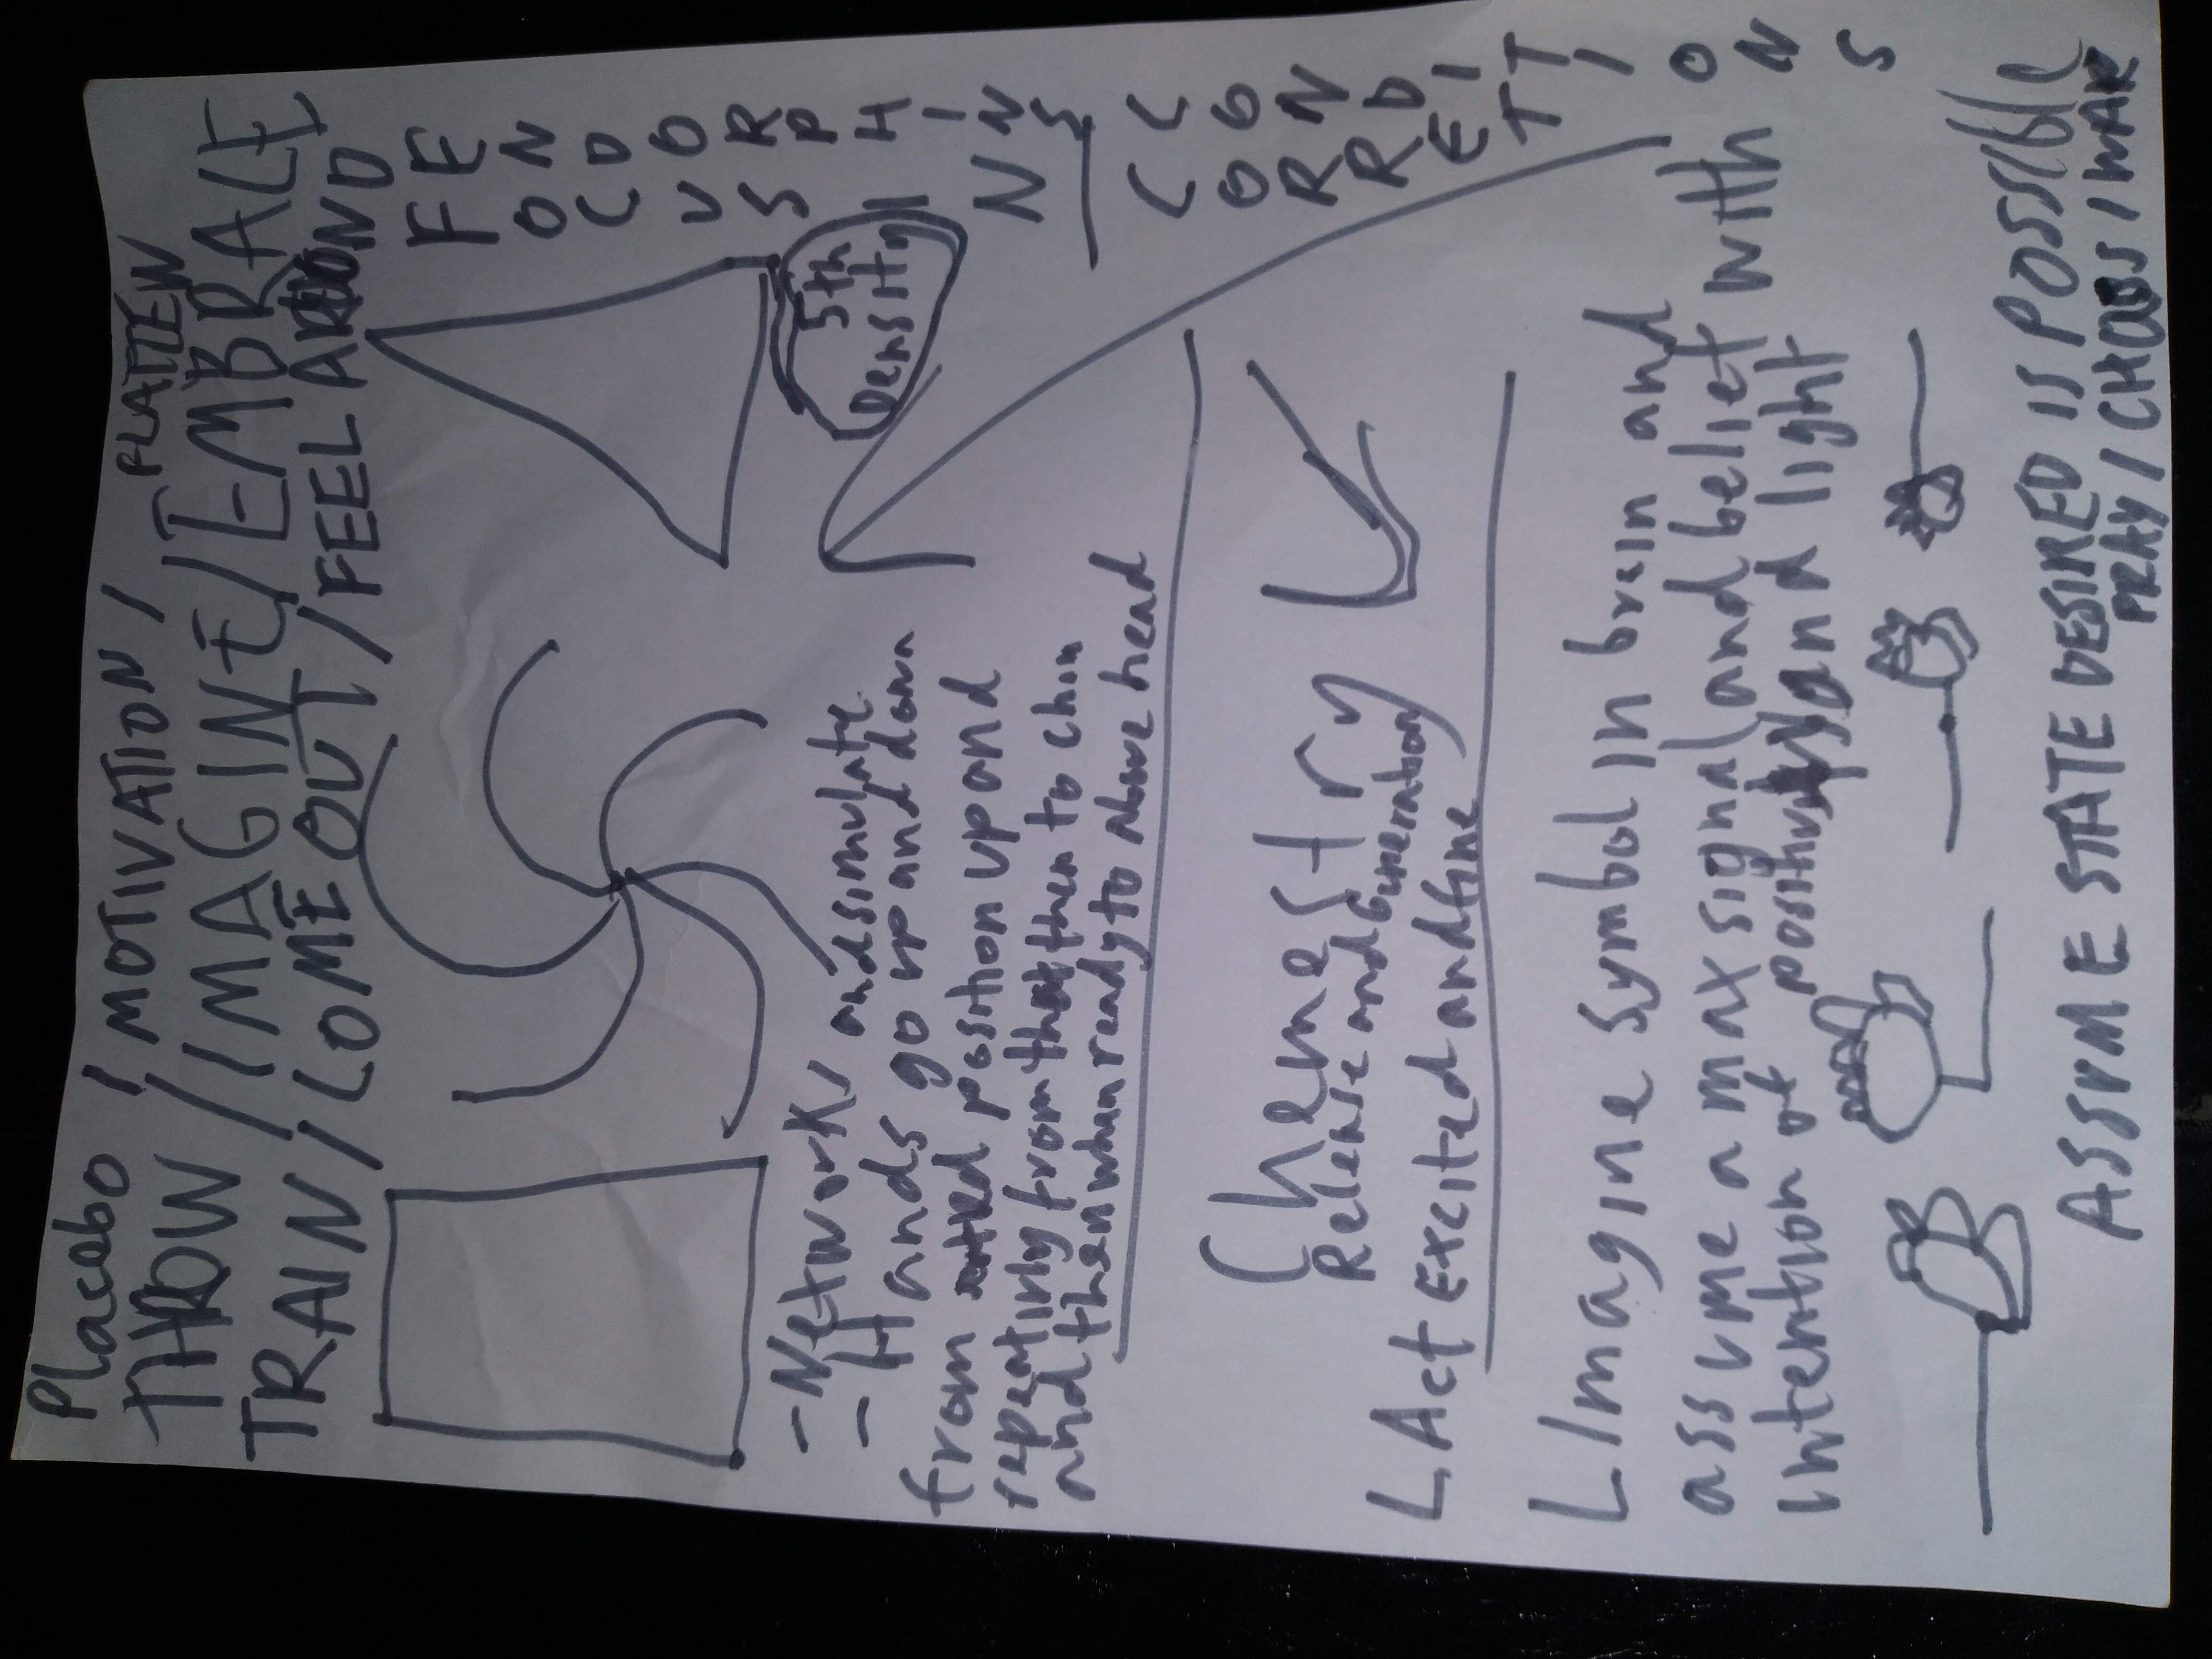 Placebo / MOTIVATION / FLATTEN
THROW / IMAGINE / EMBRACE
TRAIN / COME OUT / FEEL AROUND
FOCUS IN
ENDORPHINS
CORRECT
CONDITIONS
5th
Density
- Network and simulate
- Hands go up and down
from position up and
repeating from then to chin
and then when ready to above head
Chemestry
Release and Generation
L Act Excited and fine
L Imagine symbol in brain and
assume a max signal and belief with
intention of and light
ASSUME STATE DESIRED IS POSSIBLE
PRAY / CHAOS / MAR